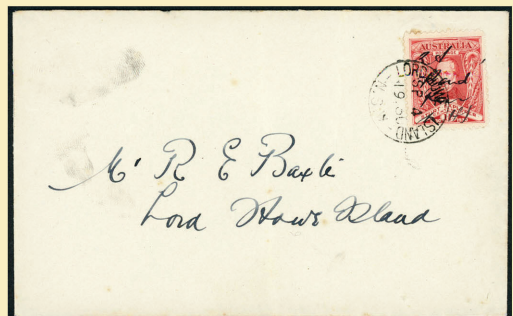 AUSTRALIA
LORD HOWE ISLAND N.S.W
Mr R E Baxter
Lord Howe Island